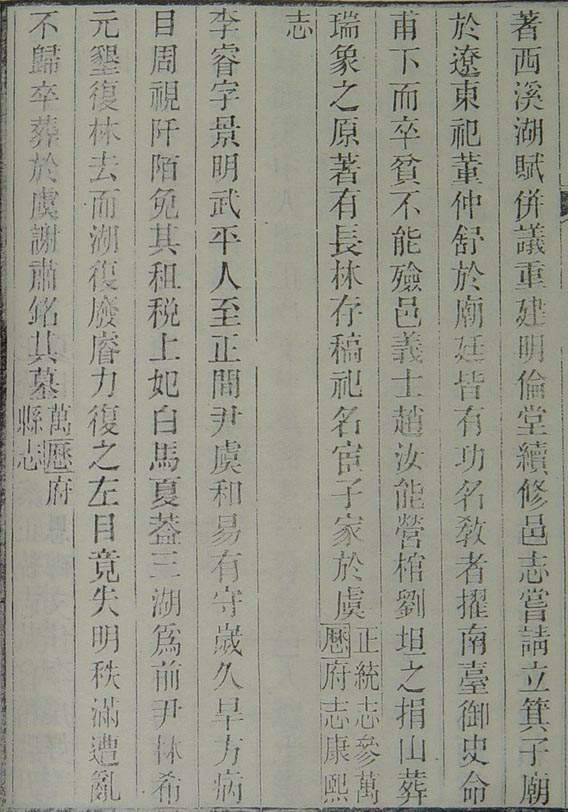 著西溪湖賦併議重建明倫堂續修邑志嘗請立箕子廟
於遼東祀董仲舒於廟廷皆有功名敎者擢南臺御史命
甫下而卒貧不能殮邑義士趙汝能營棺劉坦之捐山葬
瑞象之原著有長林存稿祀名宦子家於虞正統志參萬
厯府志康熙
志
李睿字景明武平人至正間尹虞和易有守歲久旱方病
目周視阡陌免其租稅上妃白馬夏蓋三湖爲前尹林希
元墾復林去而湖復廢睿力復之左目竟失明秩滿遭亂
不歸卒葬於虞謝肅銘其墓萬厯府
縣志